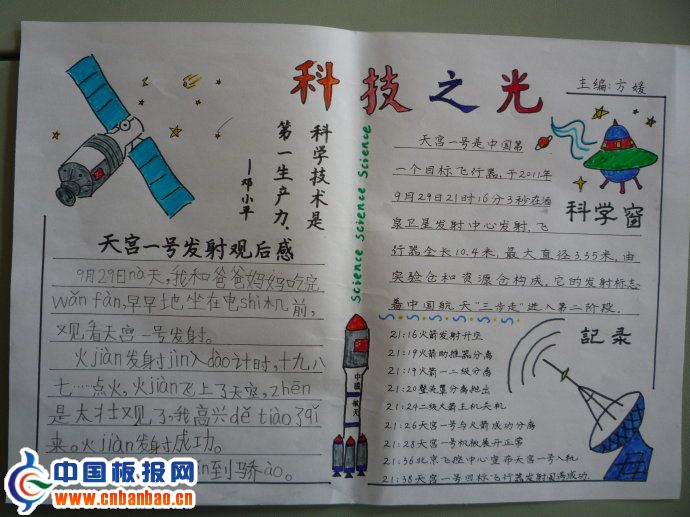 科技之光
主编:方媛
科学技术是
第一生产力.
—邓小平
天宫一号发射观后感
9月29日nà天,我和爸爸妈妈吃完
wǎn fàn,早早地坐在电shì机前,
观看天宫一号发射。
火jiàn发射jìn入dào计时,十九八
七……点火,火jiàn飞上了天空,zhēn
是太壮观了,我高兴dě tiào了qǐ
来。火jiàn发射成功。
到骄ào。
Science Science Science
中国航天
天宫一号是中国第
一个目标飞行器,于2011年
9月29日21时16分3秒在酒
泉卫星发射中心发射,飞
行器全长10.4米,最大直径3.35米,由
实验仓和资源仓构成,它的发射标志
着中国航天"三步走"进入第二阶段.
科学窗
記录
21:16火箭发射升空
21:19火箭助推器分离
21:19火箭一二级分离
21:20整流罩分离抛出
21:24二级火箭主机关机
21:26天宫一号与火箭成功分离
21:28天宫一号帆板展开正常
21:36北京飞控中心宣布天宫一号入轨
21:38天宫一号目标飞行器发射圆满成功.
中国板报网
www.cnbanbao.cn